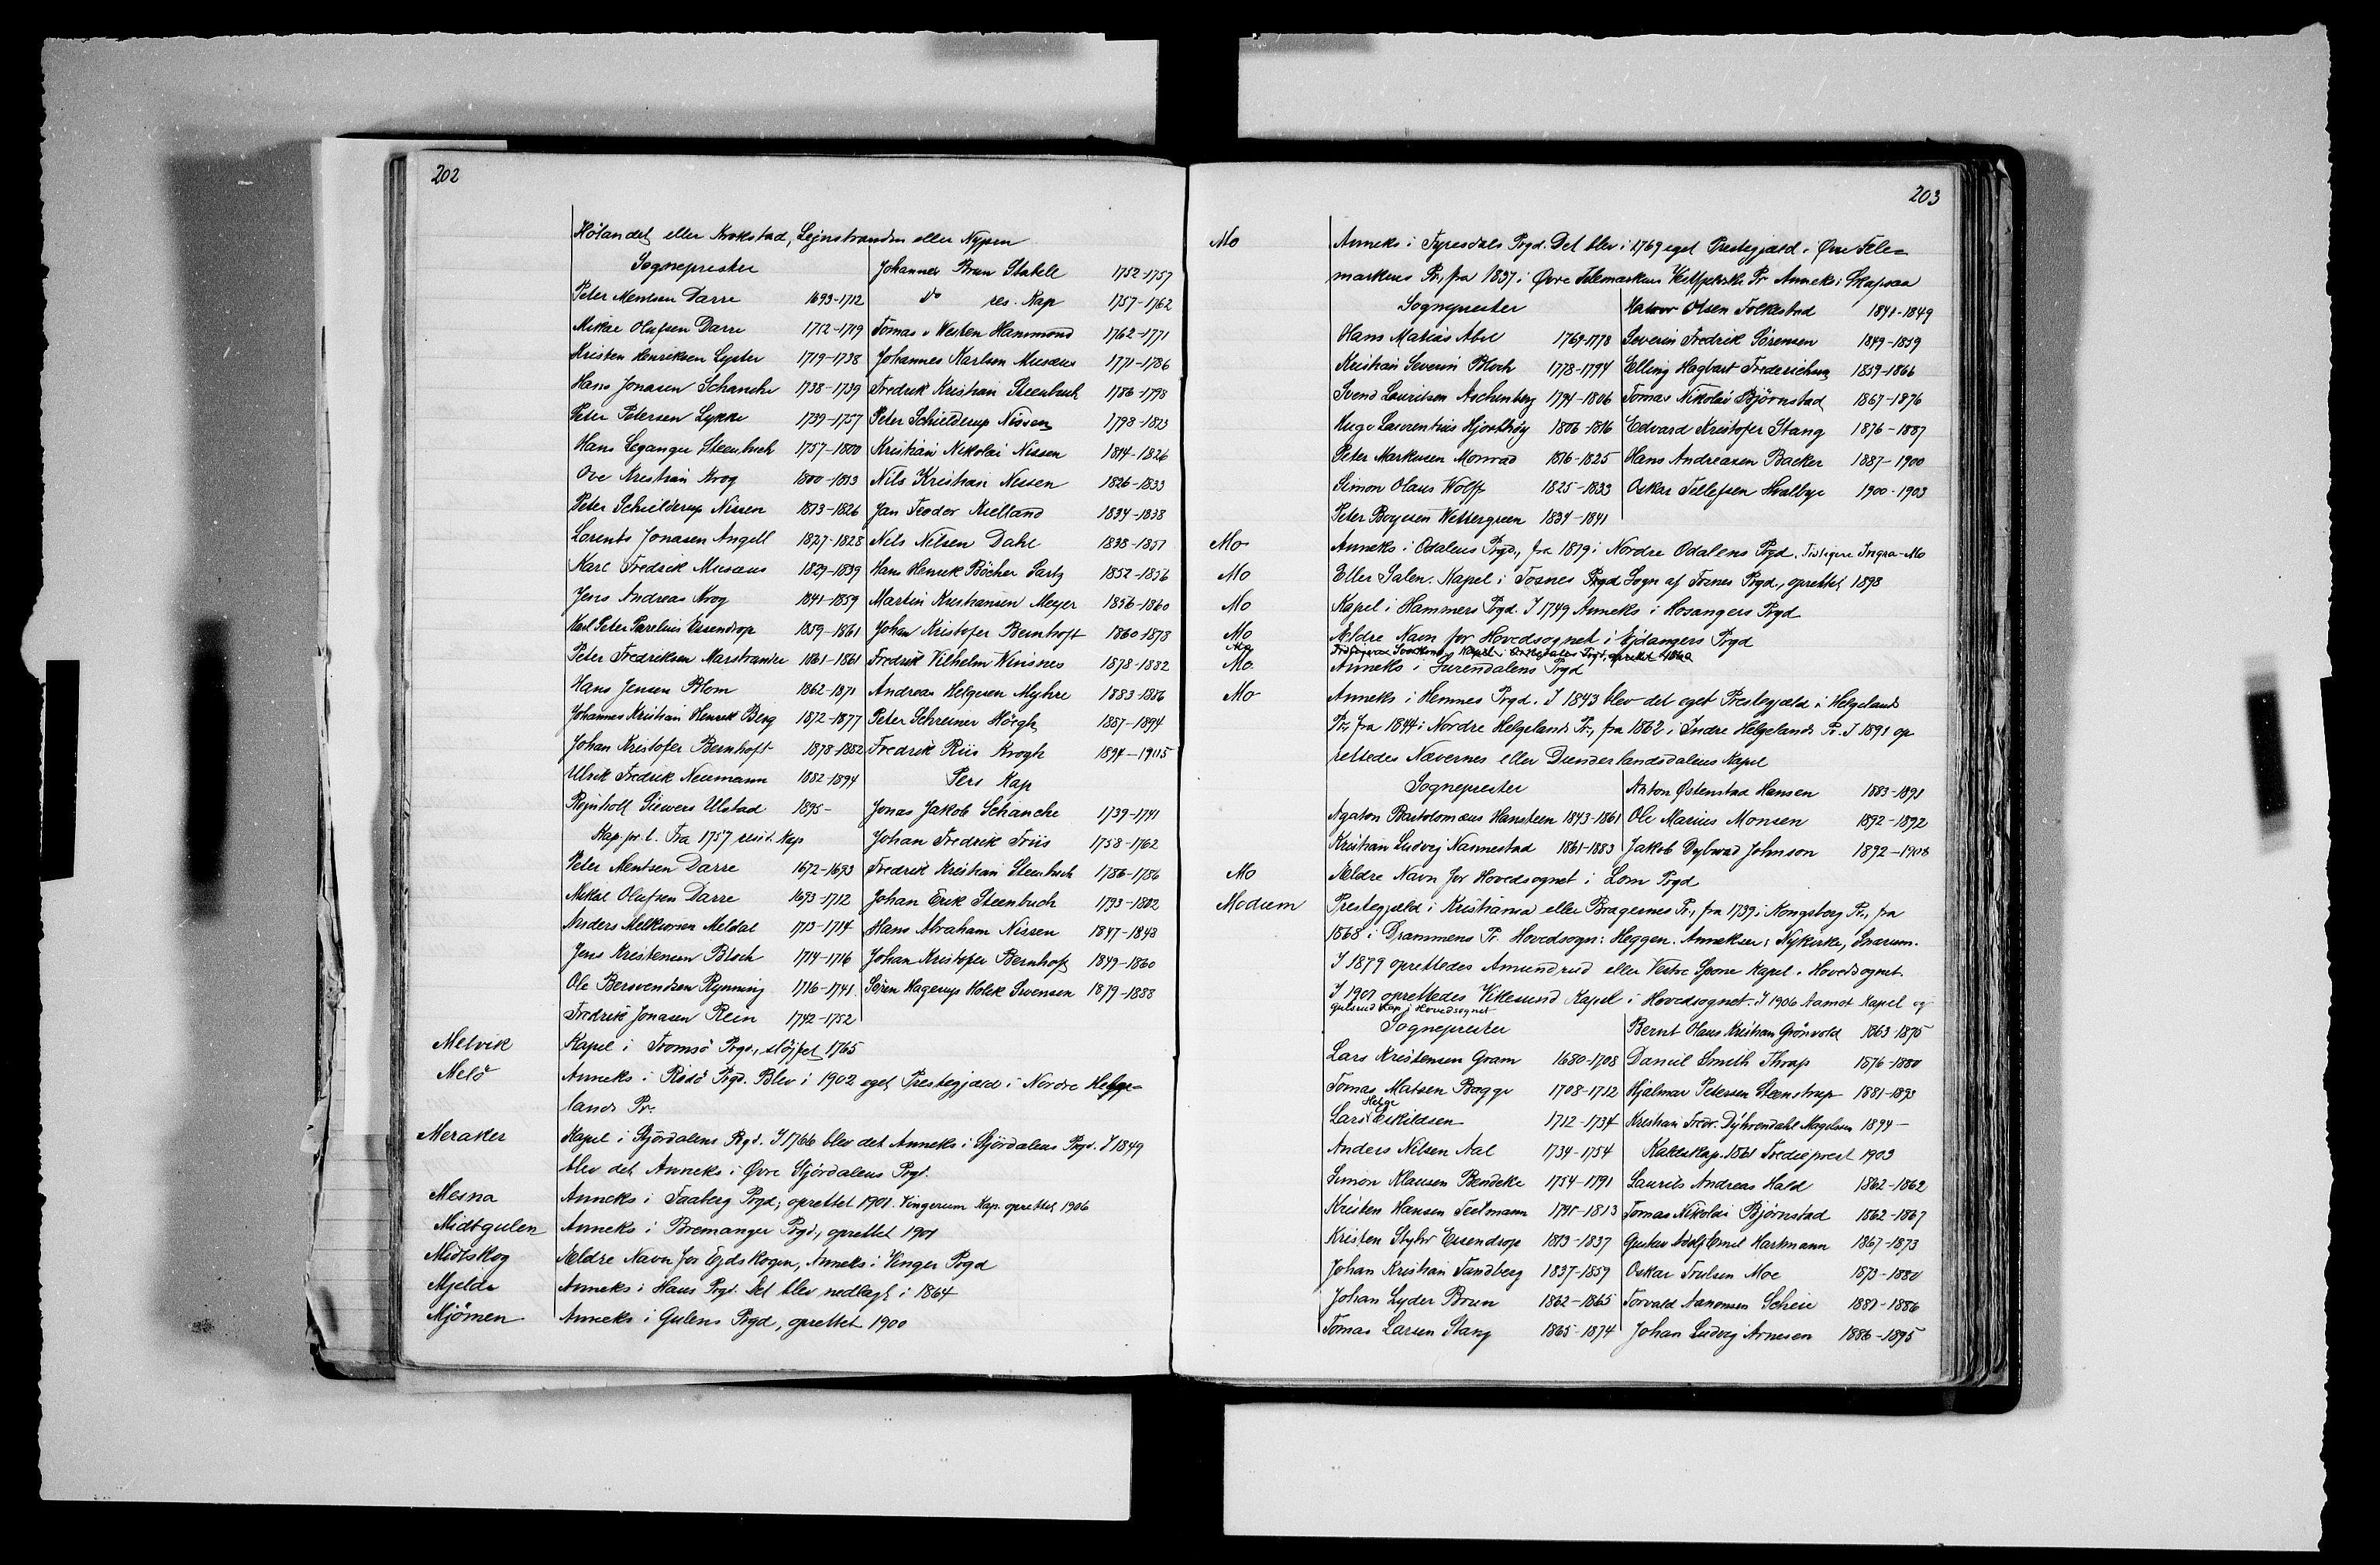 202
Hölandet eller Krokstad, Lejnstranden eller Nypen
Sogneprester
Peter Mentsen Darre 1693-1712
Mikae Olufsen Darre 1712-1719
Kristen Henriksen Lyster 1719-1738
Hans Jonasen Schanche 1738-1739
Peter Petersen Lykke 1739-1757
Hans Leganger Steenbuch 1757-1800
Ove Kristian Krog 1800-1813
Peter Schielderup Nissen 1813-1826
Lorents Jonasen Angell 1827-1828
Karl Fredrik Musæus 1829-1839
Jens Andreas Krog 1841-1859
Karl Peter Parelius Essendrop 1859-1861
Peter Fredriksen Marstrander 1861-1861
Hans Jensen Blom 1862-1871
Johannes Kristian Henrik Berg 1872-1877
Johan Kristofer Bernhoft 1878-1882
Ulrik Fredrik Neumann 1882-1894
Rejnholt Siewers Ulstad 1895-
Kap. pr. l. Fra 1757 resid. Kap
Peter Mentsen Darre 1672-1693
Mikal Olufsen Darre 1693-1712
Anders Melkiorsen Meldal 1713-1714
Jens Kristensen Bloch 1714-1716
Ole Bersvendsen Rynning 1716-1741
Fredrik Jonasen Rein 1742-1752
Johannes Brun Stabell 1752-1757
do res. Kap 1757-1762
Tomas v Westen Hammond 1762-1771
Johannes Karlsen Musæus 1771-1786
Fredrik Kristian Steenbuch 1786-1798
Peter Schielderup Nissen 1798-1823
Kristian Nikolai Nissen 1814-1826
Nils Kristian Nissen 1826-1833
Jan Teodor Kielland 1834-1838
Nils Nilsen Dahl 1838-1851
Hans Henrik Böcher Sartz 1852-1856
Martin Kristiansen Meyer 1856-1860
Johan Kristofer Bernhoft 1860-1878
Fredrik Vilhelm Winsnes 1878-1882
Andreas Helgesen Myhre 1883-1886
Peter Schreiner Höegh 1887-1894
Fredrik Riis Krogh 1894-1905
Pers Kap
Jonas Jakob Schanche 1739-1741
Johan Fredrik Friis 1758-1762
Fredrik Kristian Steenbuch 1786-1786
Johan Erik Steenbuch 1793-1802
Hans Abraham Nissen 1847-1848
Johan Kristofer Bernhoft 1849-1860
Sören Hagerup Holck Svensen 1879-1888
Melvik Kapel i Tromsö Prgd., sløjfet 1765
Melö Anneks i Rödö Prgd. Blev i 1902 eget Prestegjæld i Nordre Helge-
lands Pr.
Meraker Kapel i Stjördalens Prgd. I 1766 blev det Anneks i Stjördalens Prgd. I 1849
blev det Anneks i Øvre Stjördalens Prgd.
Mesna Anneks i Faaberg Prgd; oprettet 1901. Vingerum Kap. oprettet 1906
Midtgulen Anneks i Bremanger Prgd., oprettet 1901
Midtskog Ældre Navn for Ejdskogen, Anneks i Vinger Prgd
Mjelde Anneks i Haus Prgd. Det blev nedlagt i 1864
Mjömen Anneks i Gulens Prgd, oprettet 1900
203
Mo Anneks i Fyresdals Prgd. Det blev i 1769 eget Prestegjæld i Øvre Tele-
markens Pr, fra 1837 i Øvre Telemarkens Vestfjelske Pr Anneks: Skafsaa
Sogneprester
Hans Matias Abel 1769-1778
Kristian Severin Bloch 1778-1794
Svend Lauritsen Aschenberg 1794-1806
Hugo Laurentius Hjorthöy 1806-1816
Peter Markusen Monrad 1816-1825
Simon Olaus Wolff 1825-1833
Peter Boyesen Wettergreen 1834-1841
Halvor Olsen Folkestad 1841-1849
Severin Fredrik Sörensen 1849-1859
Elling Hagbart Frederichsen 1859-1866
Tomas Nikolai Björnstad 1867-1876
Edvard Kristofer Stang 1876-1887
Hans Andreasen Backer 1887-1900
Oskar Tellefsen Hvalbye 1900-1903
Mo Anneks i Odalens Prgd., fra 1819 i Nordre Odalens Prgd. Tidligere Ingra-Mo
Mo Eller Salen. Kapel i Fosnes Prgd Sogn af Fosnes Prgd., oprettet 1898
Mo Kapel i Hammers Prgd. I 1749 Anneks i Hosangers Prgd
Mo Ældre Navn for Hovedsognet i Ejdangers Prgd
Mo Anneks i Surendalens Prgd
Mo Anneks i Hemnes Prgd. I 1843 blev det eget Prestegjæld i Helgelands
Pr, fra 1844 i Nordre Helgelands Pr., fra 1862 i Indre Helgelands Pr. I 1891 op
rettedes Nævernes eller Dunderlandsdalens Kapel
Sogneprester
Agaton Bartolomæus Hansteen 1843-1861
Kristian Ludvig Nannestad 1861-1883
Anton Østenstad Hansen 1883-1891
Ole Marius Monsen 1892-1892
Jakob Dybwad Johnson 1892-1908
Mo Ældre Navn for Hovedsognet i Lom Prgd
Modum Prestegjæld i Kristiania eller Bragernes Pr., fra 1739 i Kongsberg Pr, fra
1868 i Drammens Pr. Hovedsogn: Heggen. Annekser: Nykirke, Snarum.
I 1879 oprettedes Amundrud eller Vestre Spone Kapel i Hovedsognet.
I 1901 oprettedes Vikesund Kapel i Hovedsognet. I 1906 Aamot Kapel og
Gulsrud Kap. i Hovedsognet
Sogneprester
Lars Kristensen Gram 1680-1708
Tomas Matsen Bagge 1708-1712
Helge
Lars Eskildsen 1712-1734
Anders Nilsen Aal 1734-1754
Simon Klausen Bendeke 1754-1791
Kristen Hansen Teilmann 1791-1813
Kristen Stylw Essendrop 1813-1837
Johan Kristian Tandberg 1837-1859
Johan Lyder Brun 1862-1865
Tomas Larsen Stang 1865-1874
Bernt Olaus Kristian Grönvold 1863-1875
Daniel Smith Thrap 1876-1880
Hjalmar Petersen Steenstrup 1881-1893
Kristian Fredr. Dyhrendahl Magelsen 1894-
Kaldskap. 1861 Tredieprest 1903
Laurits Andreas Hald 1862-1862
Tomas Nikolai Bjørnstad 1862-1867
Gustav Adolf Emil Hartmann 1867-1873
Oskar Trulsen Moe 1873-1880
Torvald Aanonsen Scheie 1881-1886
Johan Ludvig Arnesen 1886-1895